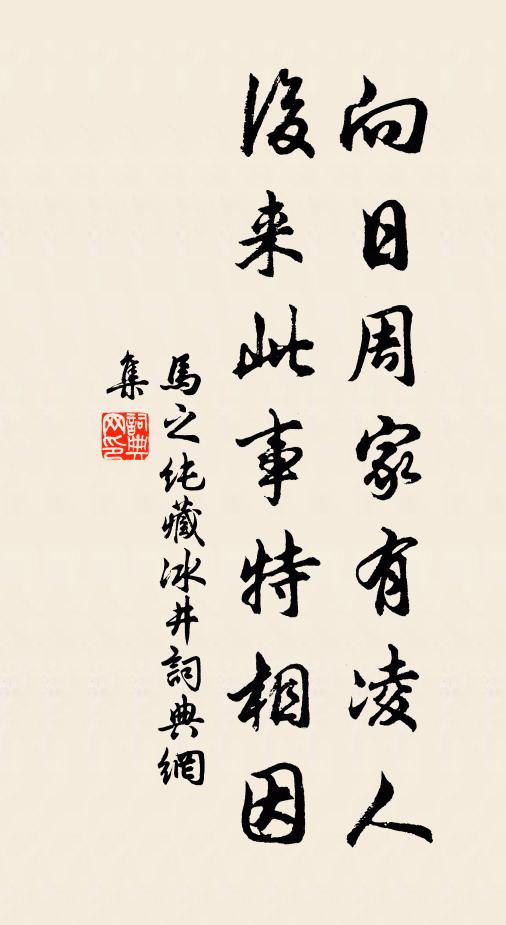 向日周家有凌人
後来此事特相因
馬之纯藏冰井詞典網
集
詞典网印